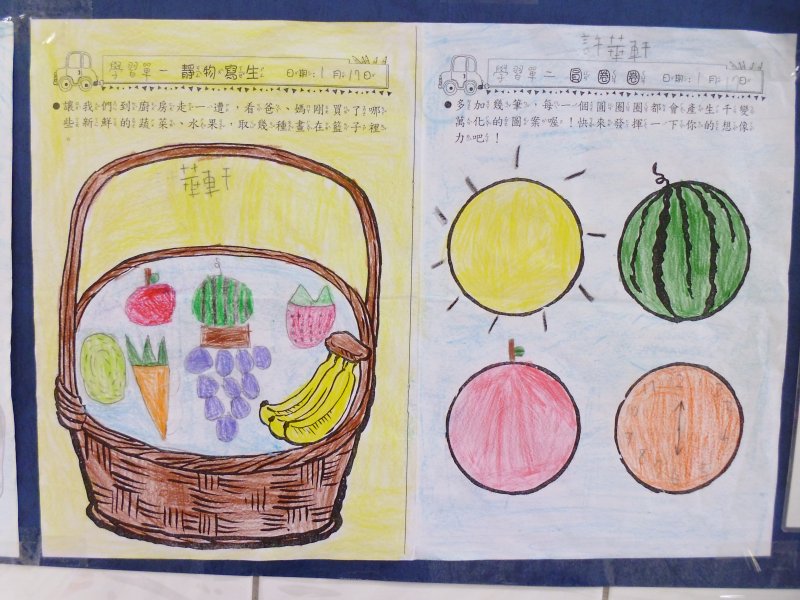 學習單一 靜物寫生 日期:1月17日
●讓我們到廚房走一遭,看爸、媽剛買了哪
些新鮮的蔬菜、水果,取幾種畫在籃子裡
。
華軒
許華軒
學習單二 圓圈圈 日期:1月17日
●多加幾筆,每一個圓圈圈都會產生千變
萬化的圖案喔!快來發揮一下你的想像
力吧!